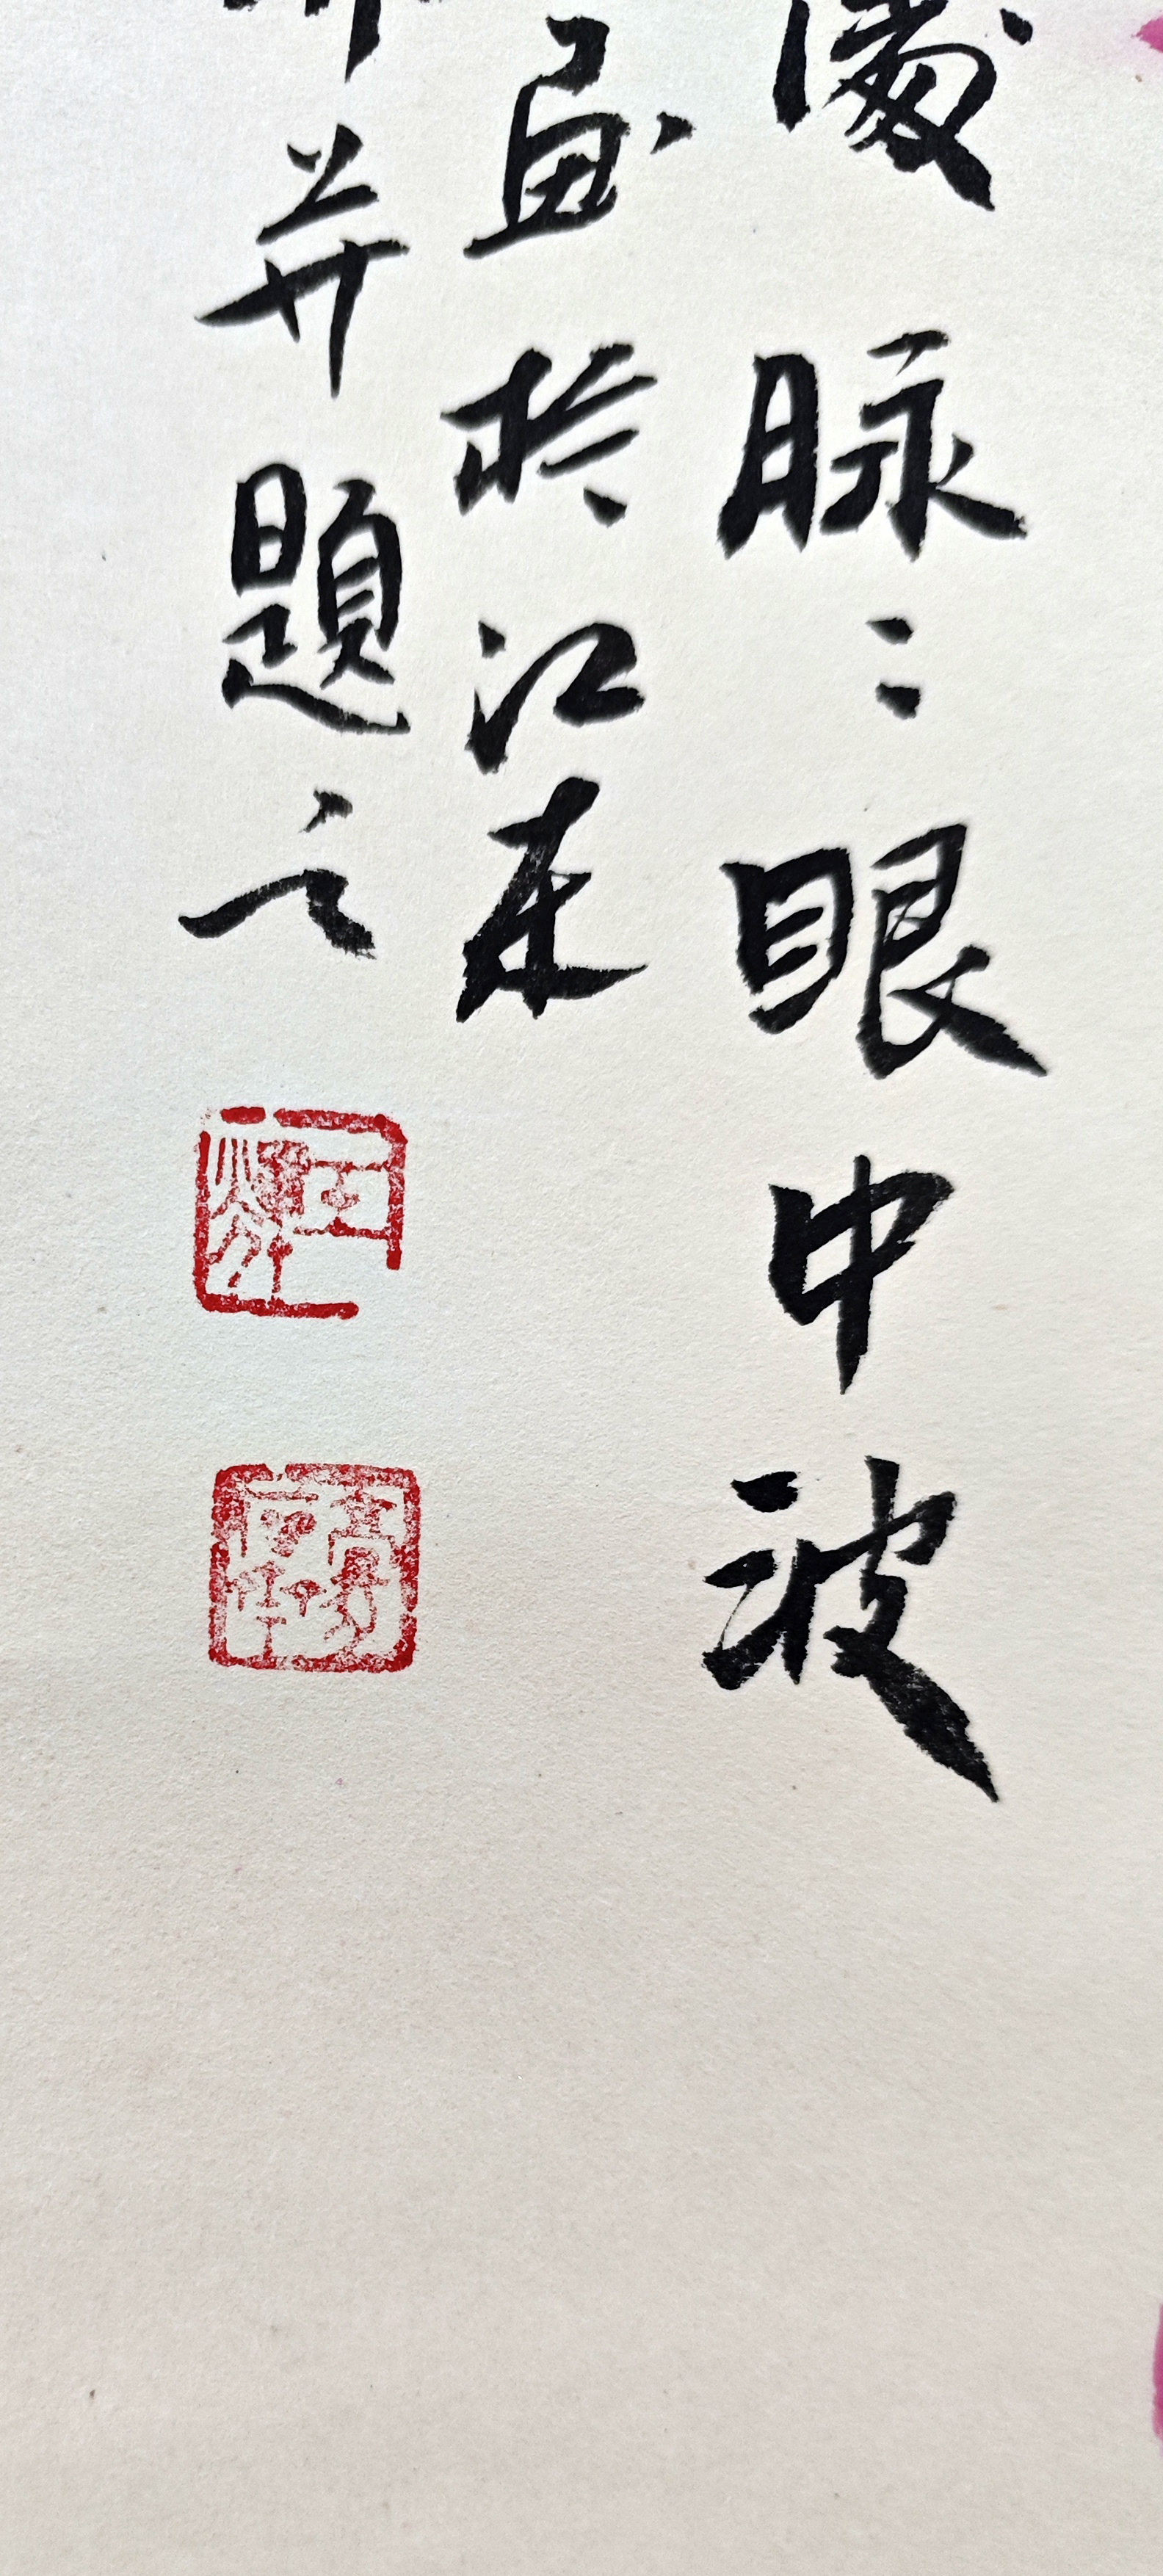 脉〻眼中波
画於江东
并題之